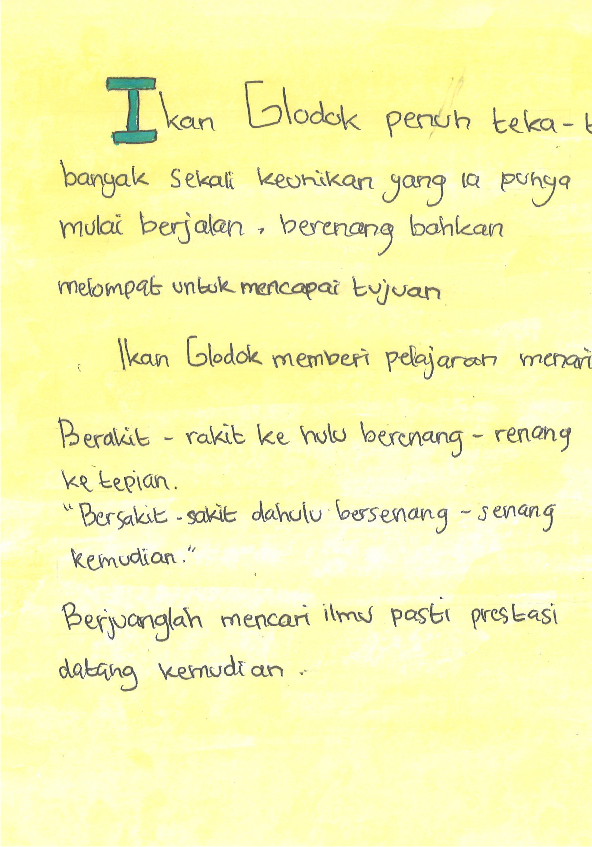 Ikan Glodok penuh teka-t
banyak sekali keunikan yang ia punya
mulai berjalan, berenang bahkan
melompat untuk mencapai tujuan
Ikan Glodok memberi pelajaran menari
Berakit - rakit ke hulu berenang - renang
ke tepian.
"Bersakit - sakit dahulu bersenang - senang
kemudian."
Berjuanglah mencari ilmu pasti prestasi
datang kemudian.